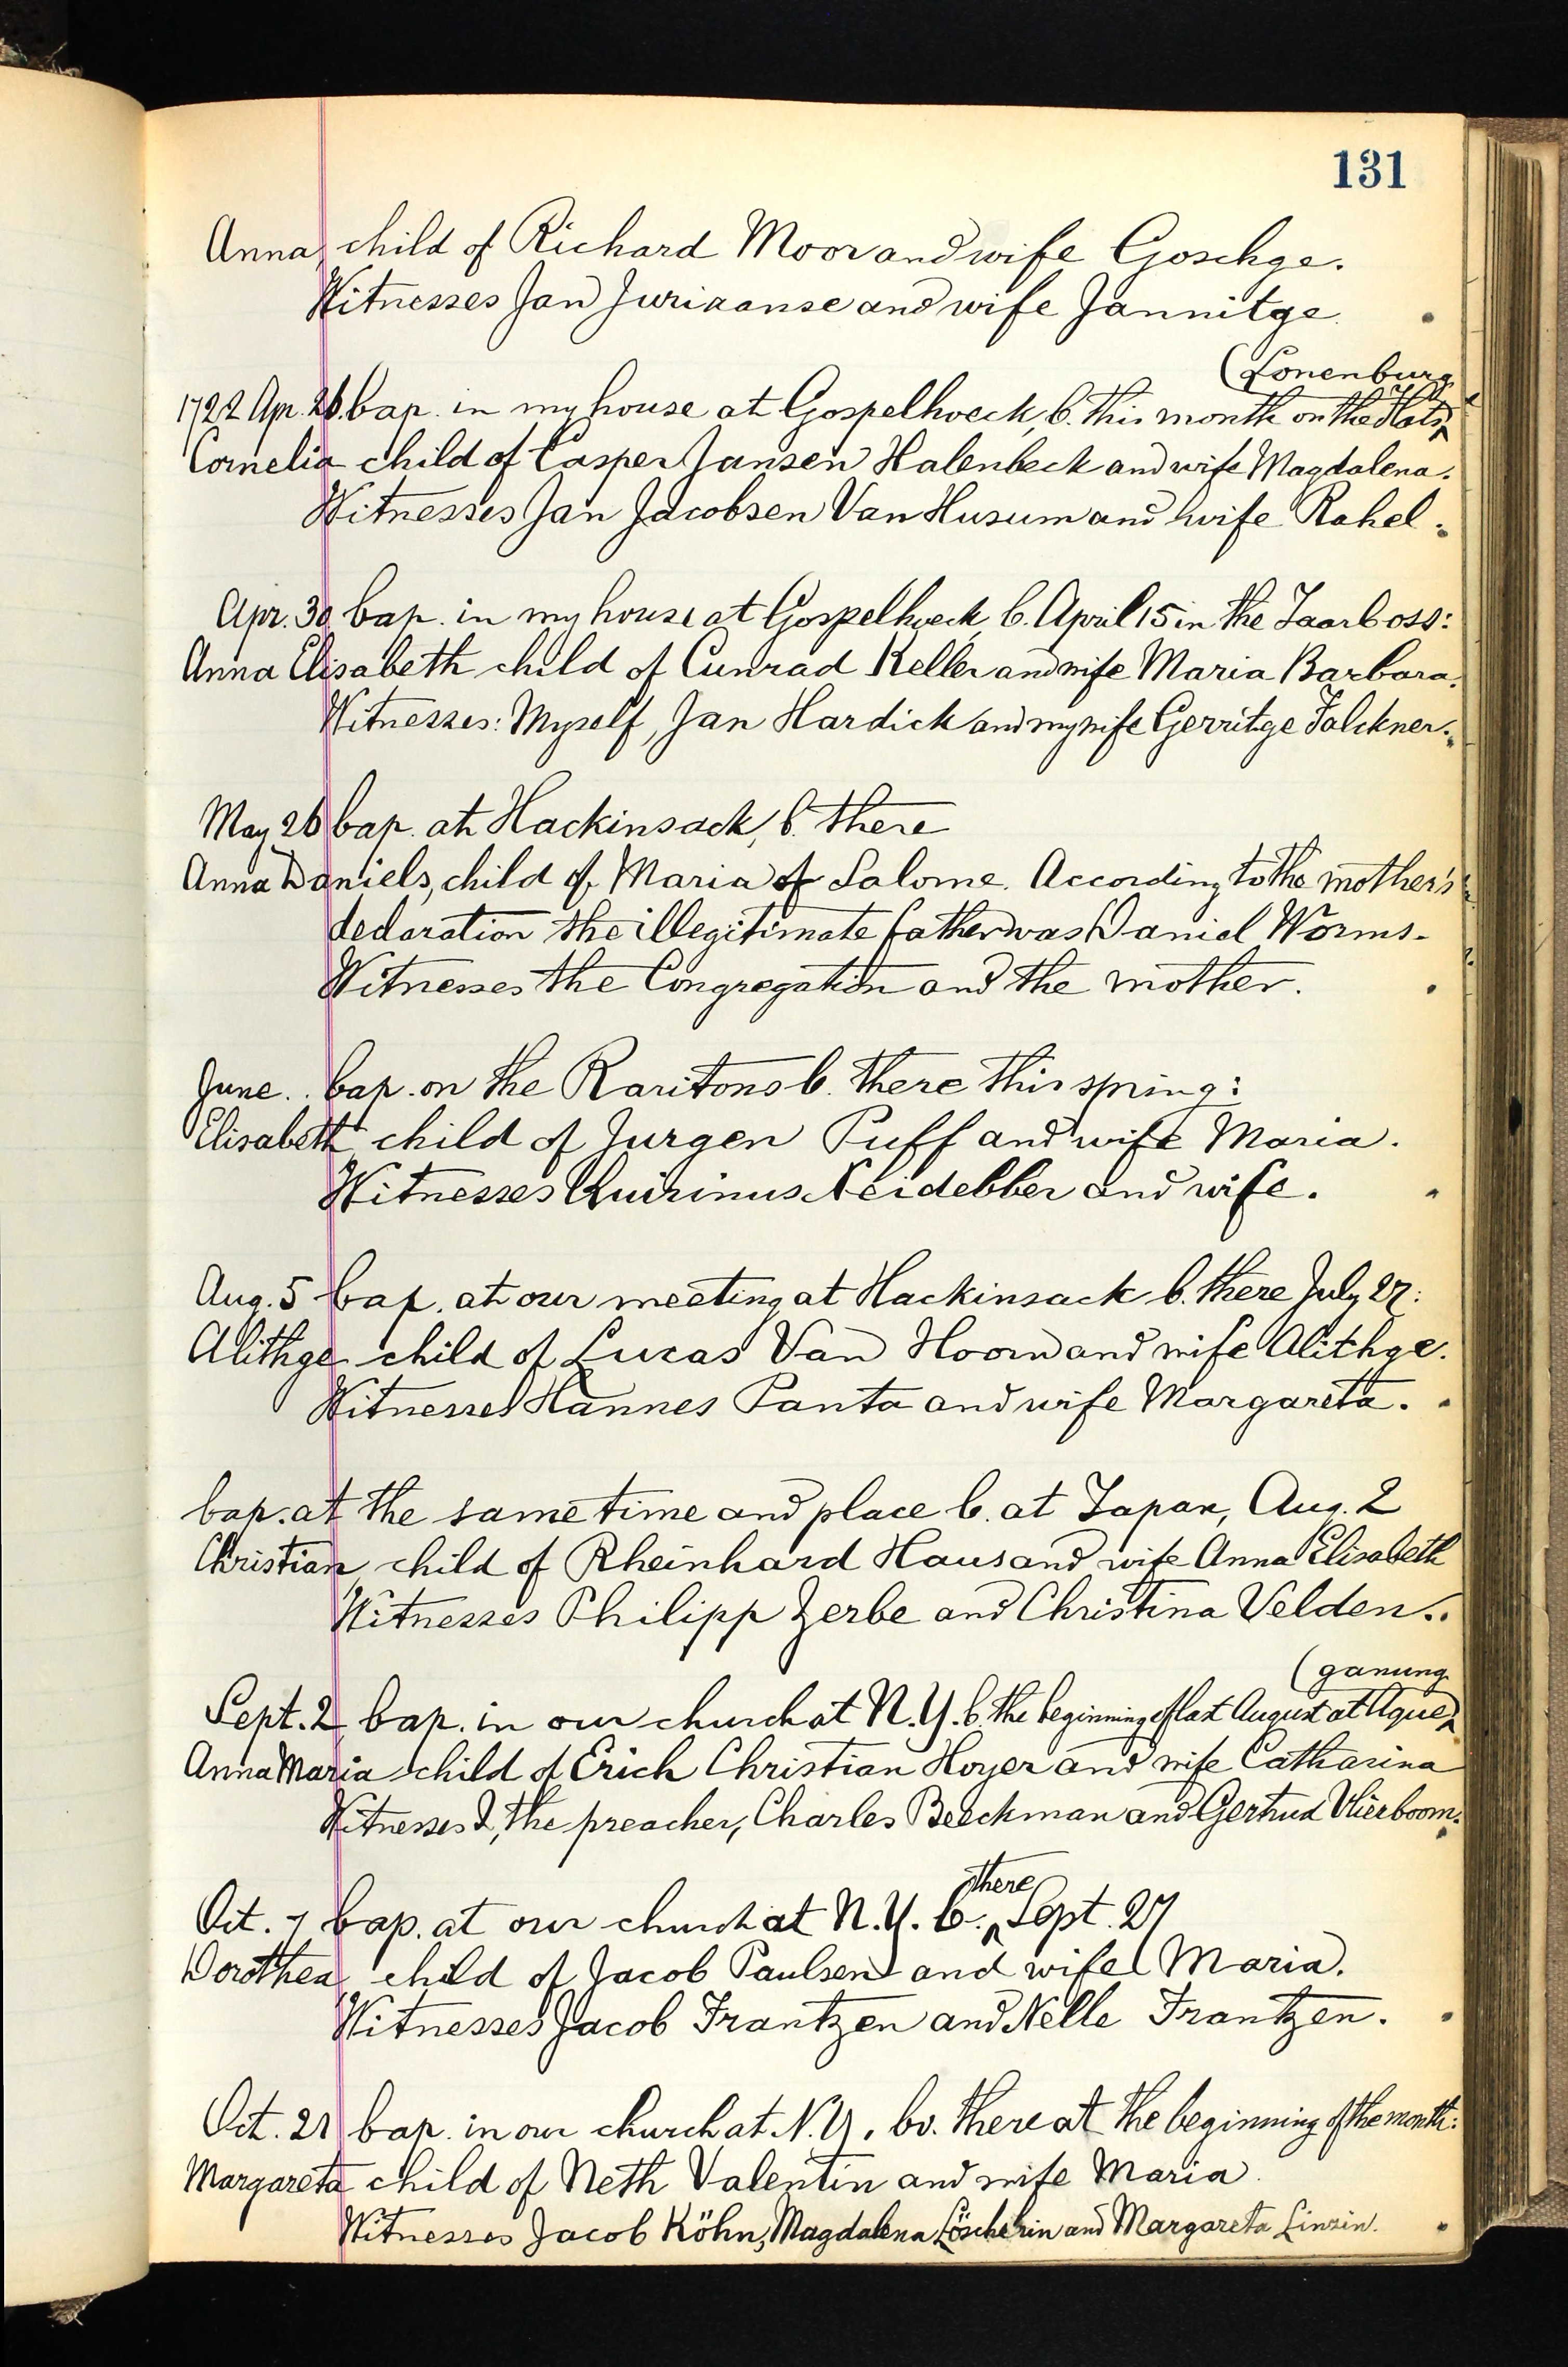 131
Anna, child of Richard Moor and wife Goschge.
Witnesses Jan Juriaanse and wife Jannitge.
(Lonenburg
1722 Apr. 26. bap. in my house at Gospelhoeck, b. this month on the Flats
Cornelia child of Casper Jansen Halenbeck and wife Magdalena.
Witnesses Jan Jacobsen Van Husum and wife Rahel.
Apr. 30 bap. in my house at Gospelhoeck, b. April 15 in the Taarboss:
Anna Elisabeth child of Cunrad Keller and wife Maria Barbara.
Witnesses: Myself, Jan Hardick and my wife Gerritge Falckner.
May 26 bap. at Hackinsack, b. there
Anna Daniels, child of Maria of Salome. According to the mother's
declaration the illegitimate father was Daniel Worms.
Witnesses the Congregation and the mother.
June.. bap. on the Raritons b. there this spring:
Elisabeth child of Jurgen Puff and wife Maria.
Witnesses Quirinus Neidebber and wife.
Aug. 5 bap. at our meeting at Hackinsack b. there July 27:
Alithge child of Lucas Van Hoorn and wife Alithge.
Witnesses Hannes Panta and wife Margareta.
bap. at the same time and place b. at Tapan, Aug. 2
Christian, child of Rheinhard Haus and wife Anna Elisabeth
Witnesses Philipp Zerbe and Christina Velden.
(ganung
Sept. 2, bap. in our church at N.Y. b. the beginning of last August at Aque
Anna Maria child of Erich Christian Hoyer and wife Catharina
Witnesses I, the preacher, Charles Beeckman and Gertrud Vlierboom.
there
Oct. 7 bap. at our church at N.Y. b. ^ Sept. 27
Dorothea, child of Jacob Paulsen and wife Maria.
Witnesses Jacob Frantzen and Nelle Frantzen.
Oct. 21 bap. in our church at N.Y. bo. there at the beginning of the month:
Margareta child of Neth Valentin and wife Maria.
Witnesses Jacob Köhn, Magdalena and Margareta Linsin.